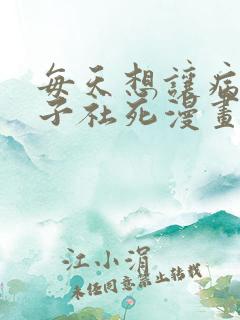 每天想讓病
子社死漫畫
江小涓
未经同意禁止转载